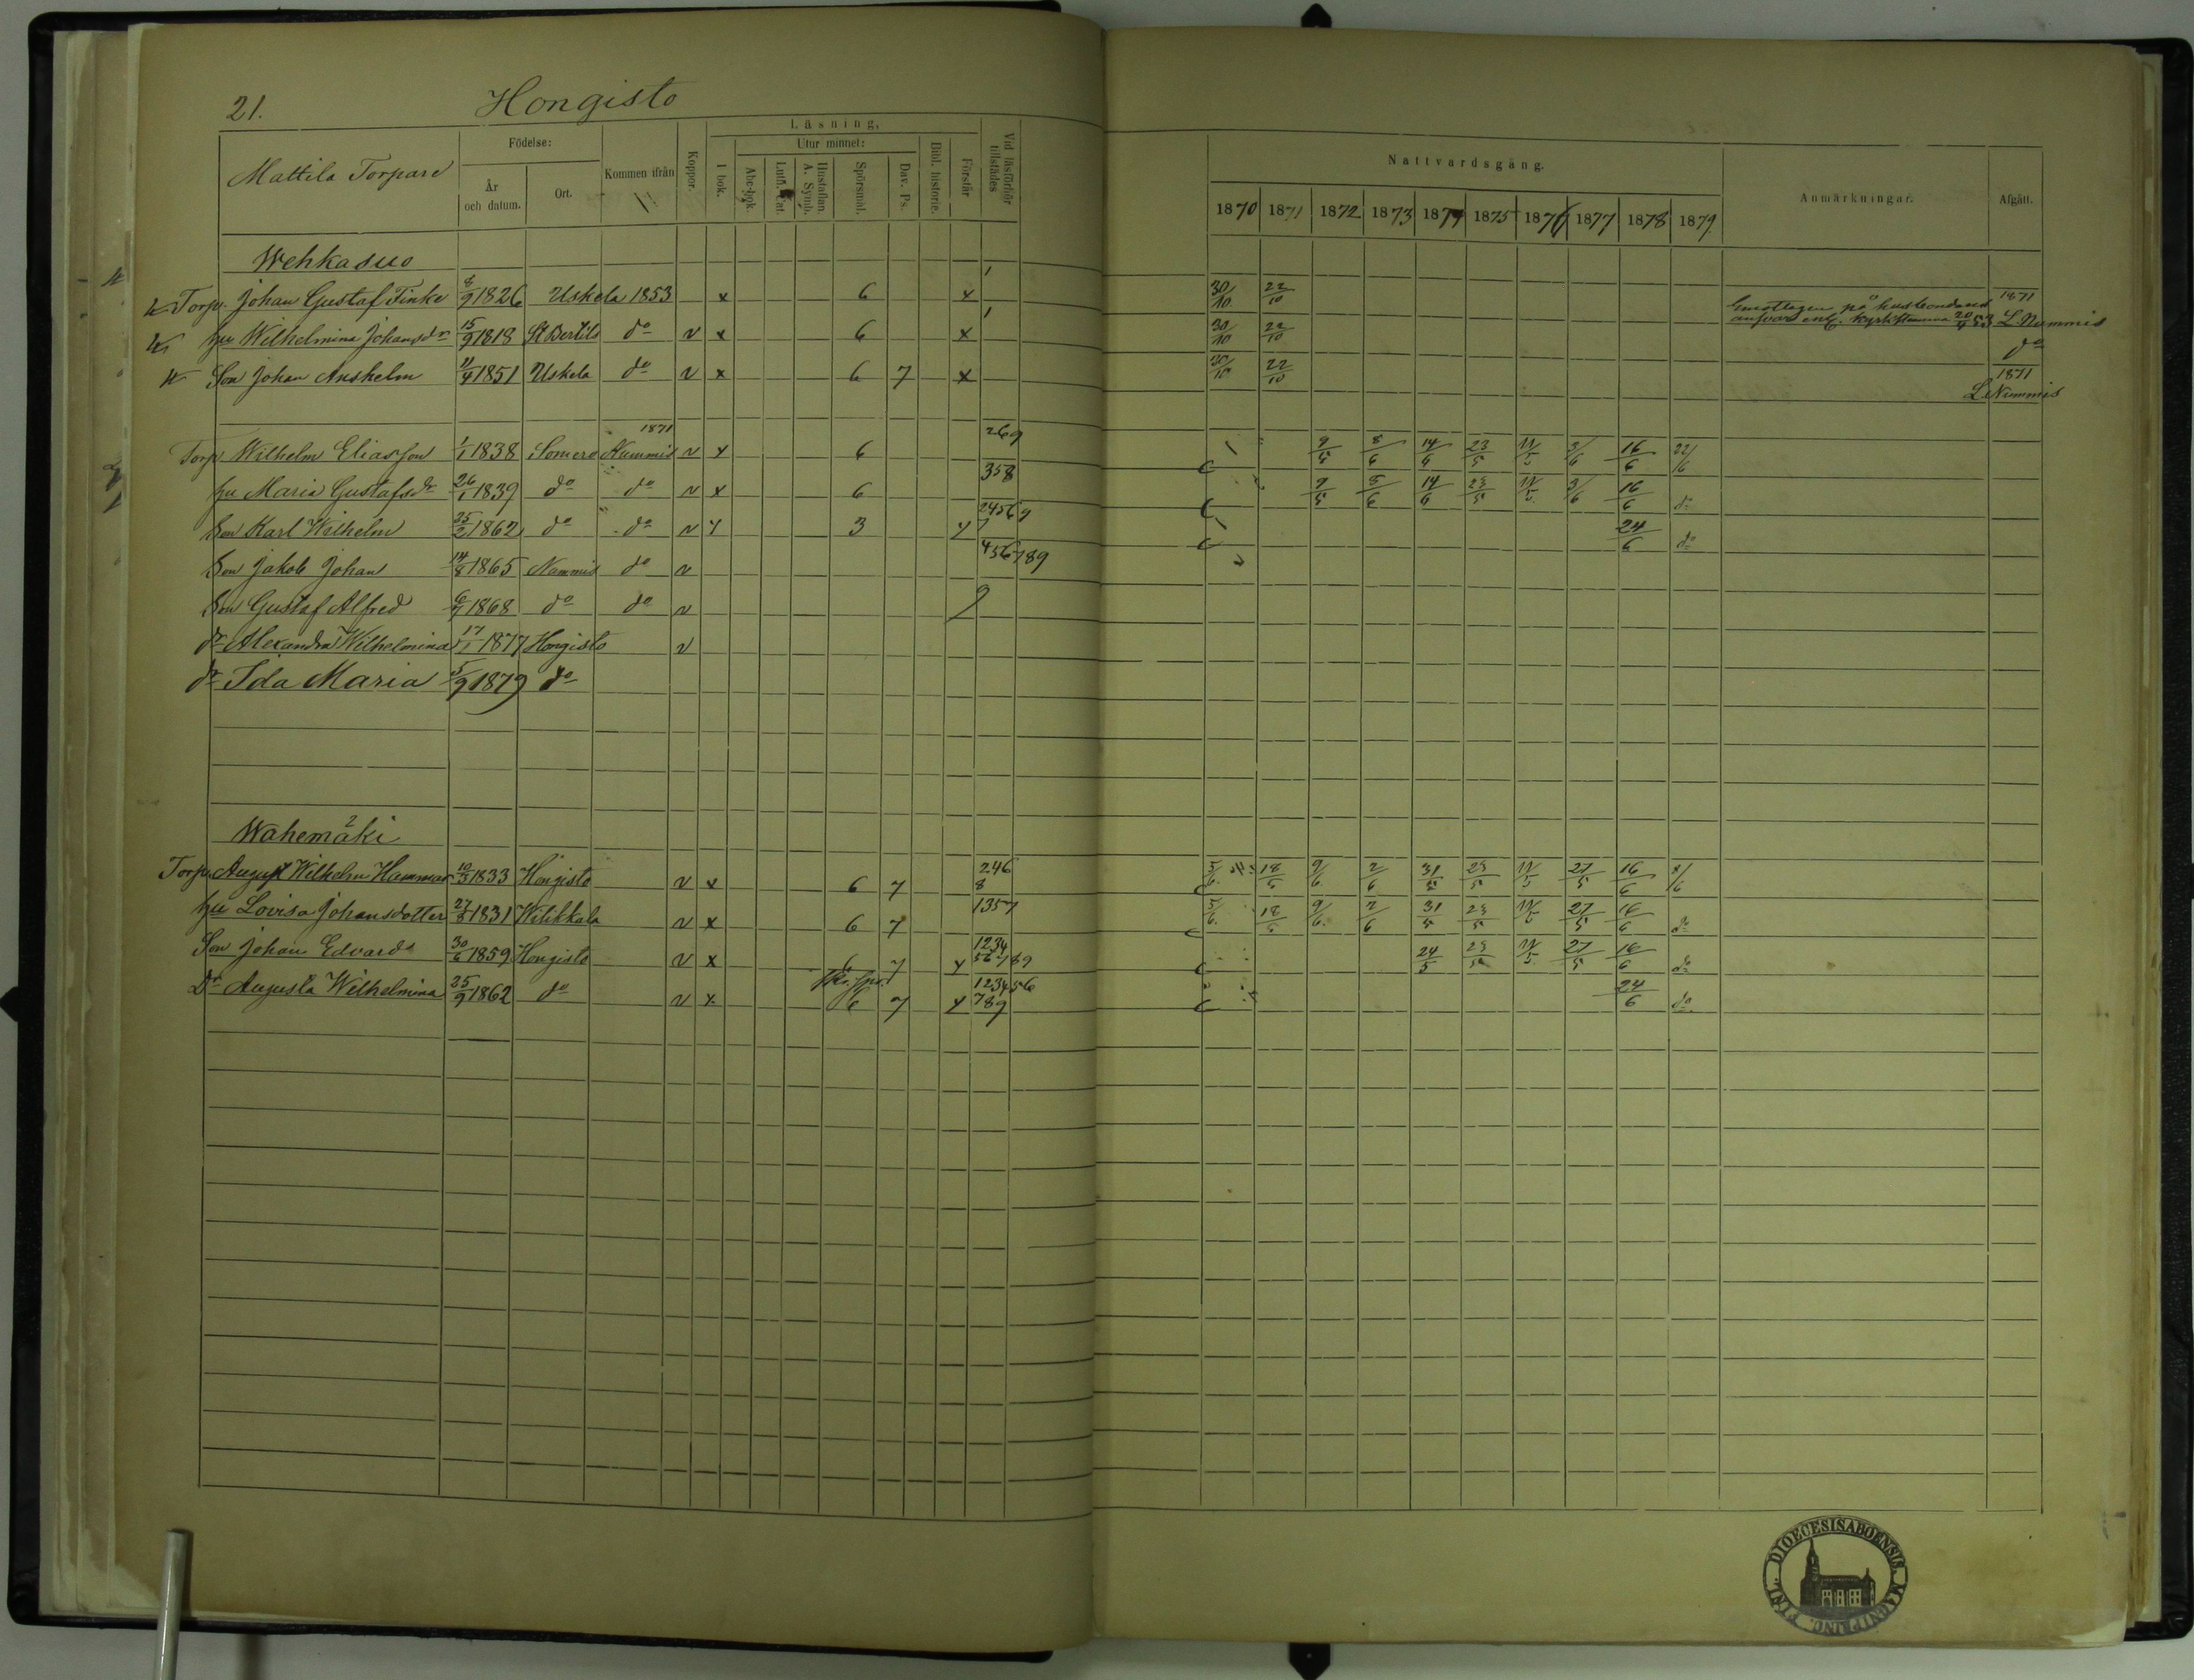 21. Hongisto
Mattila Torpare
Födelse:
År och datum.
Ort.
Kommen ifrån
Koppor.
Läsning,
I bok.
Utur minnet:
Abc-bok.
Luth. Cat.
Hustaflan. A. Symb.
Spörsmål.
Dav. Ps.
Bibl. historie.
Förstår
Vid läsförhör tillstädes
Nattvardsgång.
1870 1871 1872 1873 1874 1875 1876 1877 1878 1879
Anmärkningar.
Afgått.
Wehkasuo
Torp. Johan Gustaf Finke 8/9 1826 Uskela 1853 x 6 x 1 30/10 22/10 på husbondens ansvar enl. Kyrkostämma 20/4 53 1871 L. Nummis
hu Wilhelmina Johansdr 15/9 1818 St Bertils do v x 6 x 1 30/10 22/10 do
Son Johan Anshelm 11/4 1851 Uskela do v x 6 7 x 30/10 22/10 1871 L. Nummis
Torp Wilhelm Eliasson 1/1 1838 Somero 1871 Nummis v x 6 269 9/5 8/6 14/6 23/5 11/5 3/6 16/6 22/6
hu Maria Gustafsdr 26/1 1839 do do v x 6 358 9/5 8/6 14/6 23/5 11/5 3/6 16/6 do
Son Karl Wilhelm 25/2 1862 do do v y 3 y 24569 7 24/6 do
Son Jakob Johan 14/8 1865 Nummis do v 456789
Son Gustaf Alfred 6/7 1868 do do v 9
dr Alexandra Wilhelmina 17/1 1877 Hongisto v
dr Ida Maria 5/9 1879 do
Wahemäki 2
Torp. August Wilhelm Hammar 10/3 1833 Hongisto v x 6 7 246 8 5/6 18/5 9/6 2/6 31/5 25/5 11/5 27/5 16/6 8/6
hu Lovisa Johansdotter 27/8 1831 Witikkala v x 6 7 1357 5/6 18/5 9/6 2/6 31/5 25/5 11/5 27/5 16/6 do
Son Johan Edvard 30/6 1859 Hongisto v x 6 7 y 1234 56789 24/5 25/5 11/5 27/5 16/6 do
Dr Augusta Wilhelmina 25/9 1862 do v x 6 7 y 123456 789 24/6 do
DIOECESIS ABOENSIS MAGNI PRINC. FINL.